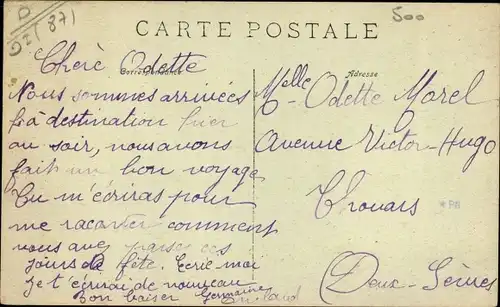 D
92 (87)
500
CARTE POSTALE
Correspondance
Adresse
Cherè Odette
Nous sommes arrivées
a destination hier
au soir, nous avons
fait un bon voyage
Tu m'écriras pour
me raconter comment
vous avez passer ces
jours de fête. Ecrie moi
je t'écrirai de nouveau
Bon baiser Germaine
Melle Odette Morel
Avenue Victor-Hugo
Thouars
Deux-Sèvres